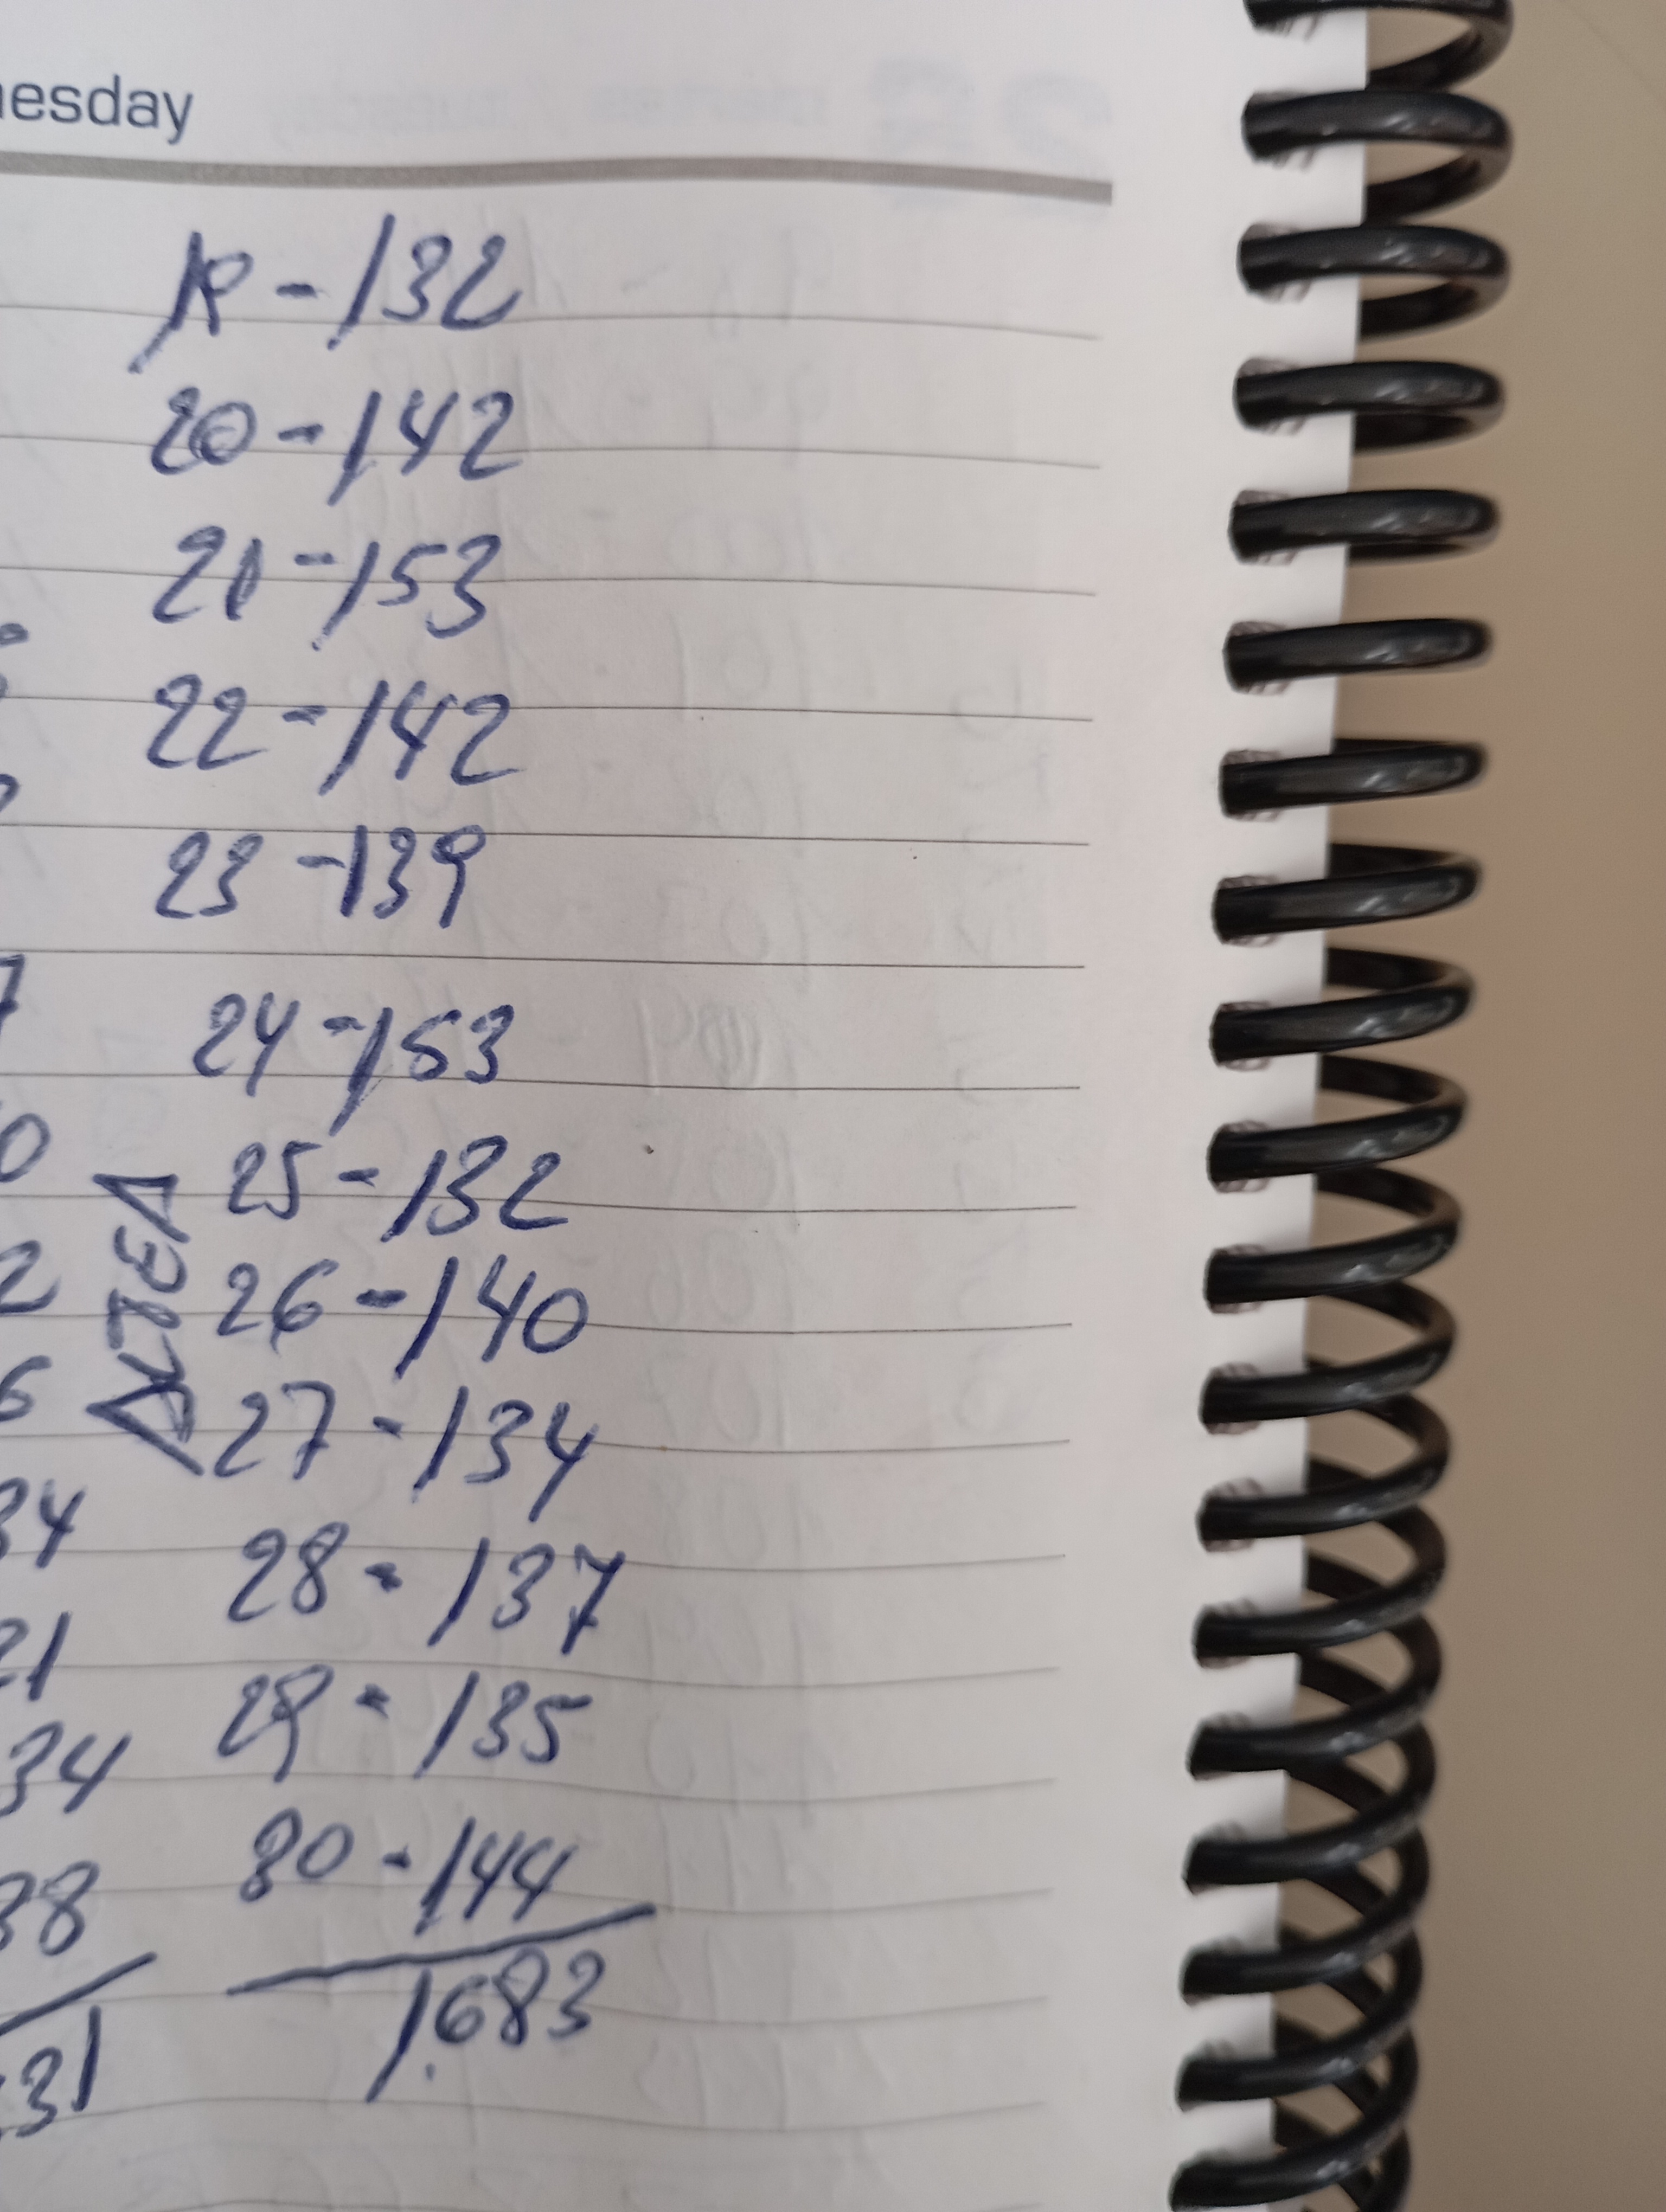 nesday
19 - 132
20 - 142
21 - 153
22 - 142
23 - 139
24 - 153
25 - 132
26 - 140
27 - 134
28 - 137
29 - 135
30 - 144
1.683
7
0
2
6
34
21
34
38
31